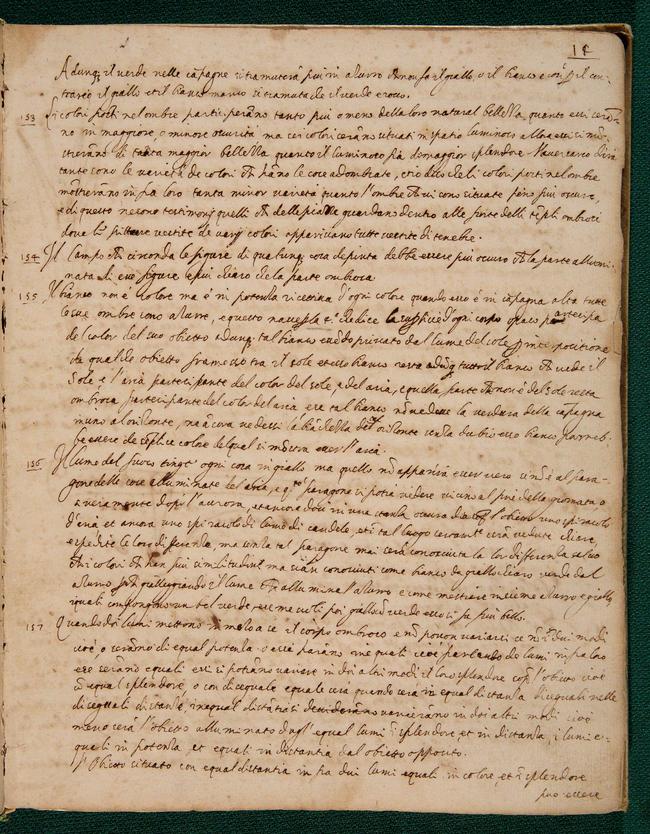 14
Adunq; il verde nelle cãpagne si tramuterà più in azurro che non fa il giallo, o il bianco e così p il con-
trario il giallo et il bianco manco si tramuta che il verde e rosso.
153 Li colori posti nel ombre parteciperãno tanto più o meno della loro natural bellezza quanto essi serã-
no in maggiore, o minore oscurità ma se i colori serãno situati in spatio luminoso allora essi si mo-
streranno di tanta maggior bellezza quanto il luminoso fia de maggior splendore
tante sono le varietà de colori che hãno le cose adombrate, et io dico che li colori posti nel ombre
mostrerãno infra loro tanta minor varietà quanto l'ombre che vi sono situate sieno più oscure,
e di questo ne sono testimonij quelli che delle piazze guardano dentro alle porte delli tẽpli ombrosi
dove le pitture vestite de varij colori appariscano tutte vestite di tenebre.
154 Il campo che circonda le figure di qualunq; cosa depinta debbe essere più oscuro che la parte allumi-
nata di esse figure e più chiaro che la parte ombrosa
155 Il bianco non è colore ma è in potentia ricettiva d'ogni colore quando esso è in cãpagna alta tutte
le sue ombre sono azurre, e questo nasce che la superficie d'ogni corpo opaco partecipa
del color del suo obietto adunq; tal bianco essẽdo privato dal lume del sole p interpositione
da qualche obietto framesso tra il sole et esso bianco resta adũq; tutto il bianco che vede il
sole e l'aria partecipante del color del sole, e del aria, e quella parte che non è del sole resta
ombrosa partecipante del color del aria e se tal bianco nõ vedesse la verdura della cãpagna
insino al orizonte, nè ancora vedessi la biãchezza del orizonte senza dubio esso bianco parreb-
be essere de semplice colore del qual si mostra esser l'aria.
156 Il lume del fuoco tinge ogni cosa in giallo ma questo nõ apparirà esser vero se nõ è al para-
gone delle cose alluminate del aria, e q.to paragone si potrà vedere vicino al fine della giornata, o
veramente dopò l'aurora, et ancora dove in una stanza oscura dia sop l'obietto uno spiracolo
d'aria et ancora uno spiracolo di lume di candela, et in tal luogo certamẽte serã vedute chiare,
e spedite le loro differenze, ma senza tal paragone mai serà conosciuta la lor differenza salvo
che i colori che han più similitudine ma sian conosciuti come bianco da giallo chiaro verde dal
azurro perchè gialleggiando il lume che allumina l'azurro è come mescolare insieme azurro e giallo
i quali compongono un bel verde, e se mescoli poi giallo cõ verde esso si fa più bello.
157 Quando doi lumi mettono in mezo a se il corpo ombroso nõ ponno variarsi se nõ ĩ dui modi
cioè o serãno di equal potentia o essi sarãno inequali cioè parlando de lumi infra loro
e se serãno equali essi si potrãno variare in doi altri modi il loro splendore sop l'obietto cioè
cõ equal splendore, o con disequale equale serà quando serà in equal distantia disequali nelle
disequali distantie, in equal distãtia si variarãno in doi altri modi cioè
meno serà l'obietto alluminato dagl' equal lumi ĩ splendore, et in distantia, i lumi e-
quali in potẽtia, et equali in distantia dal obietto opposito.
L'Obietto situato con equal distantia in fra dui lumi equali in colore, et ĩ splendore
può essere